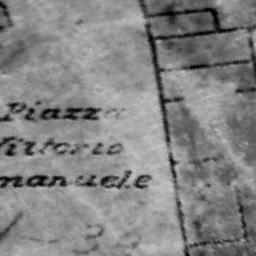 Piazza
Vittorio
manuele